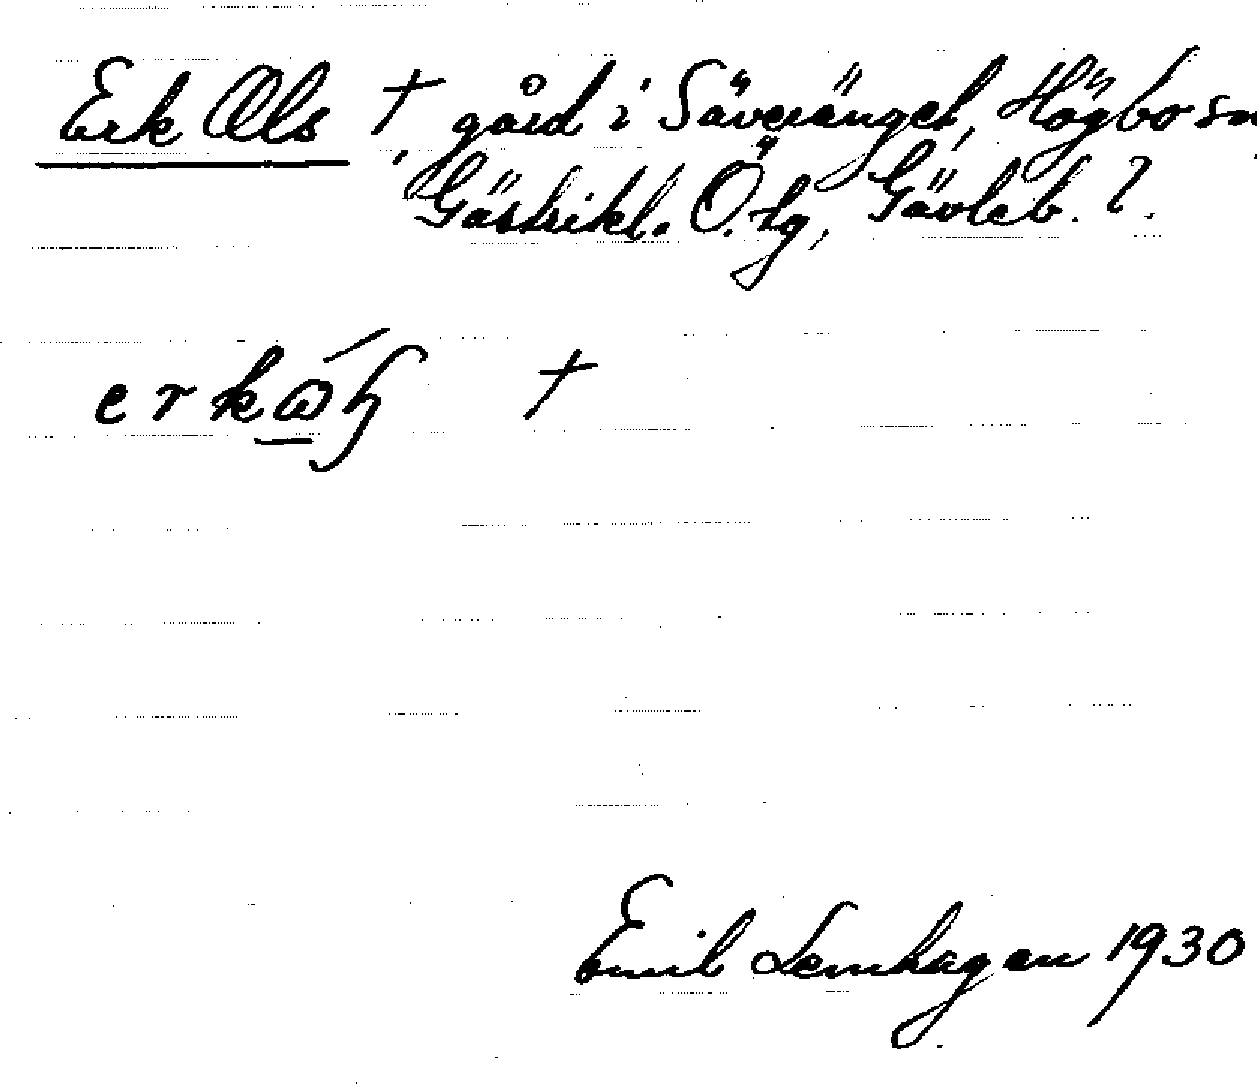 Erk Ols † gård i Säverängel, Högbo sn,
Gästrikl. Ö. tg, Gävleb. l.
Emil Lernhagen 1930